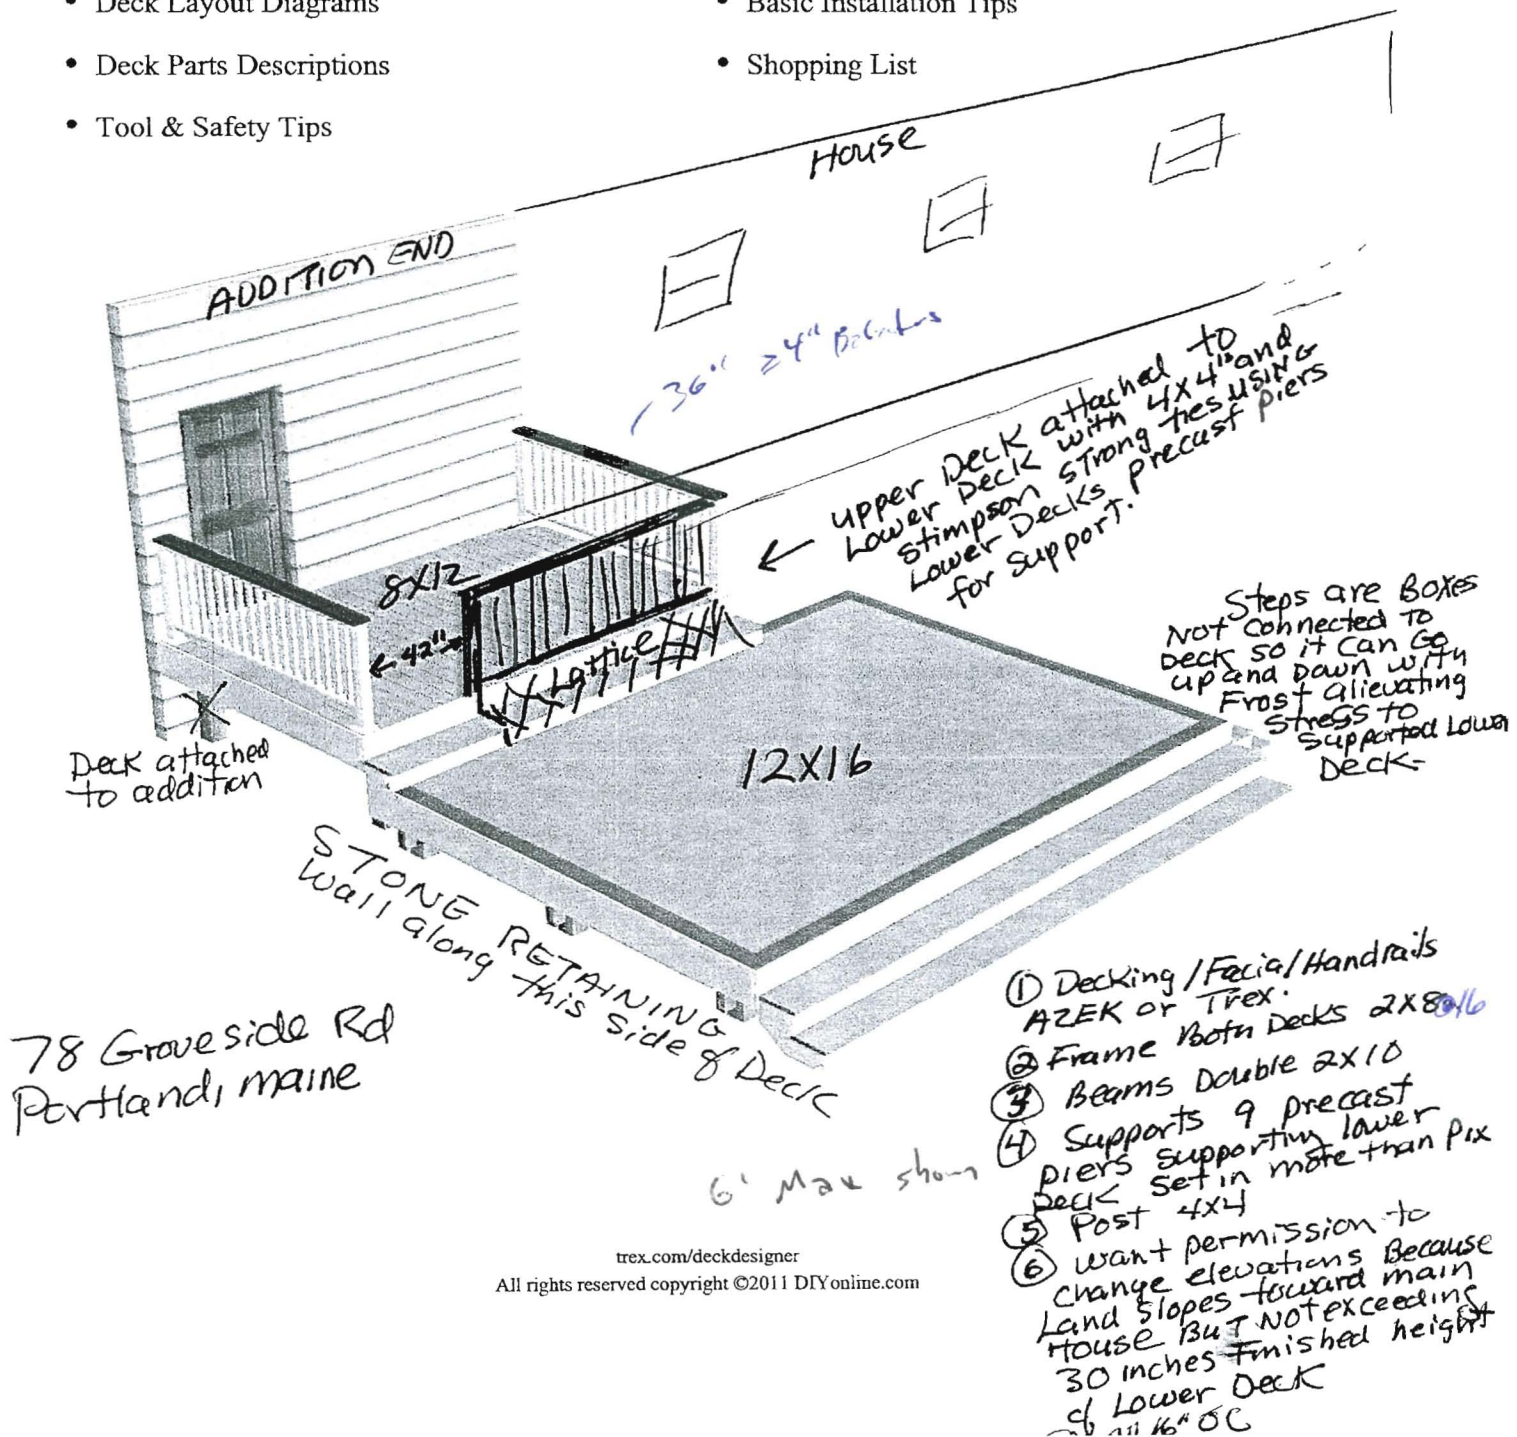 • Deck Layout Diagrams
• Basic Installation Tips
• Deck Parts Descriptions
• Shopping List
• Tool & Safety Tips
House
ADDITION END
36" ≥4"
upper Deck attached to
Lower Deck with 4x4"s and
Stimpson strong ties using
Lower Decks precast piers
for support.
8X12
← 42" →
Lattice
Steps are Boxes
Not connected to
Deck so it can Go
up and Down with
Frost alievating
stress to
Supported Lower
Deck-
Deck attached
to addition
12X16
STONE RETAINING
Wall along this side of Deck
78 Groveside Rd
Portland, maine
① Decking/Facia/Handrails
AZEK or Trex.
② Frame Both Decks 2X8 @16
③ Beams Double 2x10
④ Supports 9 precast
piers supporting lower
Deck set in more than
⑤ Post 4x4
⑥ want permission to
change elevations Because
Land slopes toward main
House BUT Not exceeding
30 inches Finished height
of Lower Deck
16" OC
6' Max shown
trex.com/deckdesigner
All rights reserved copyright ©2011 DIYonline.com